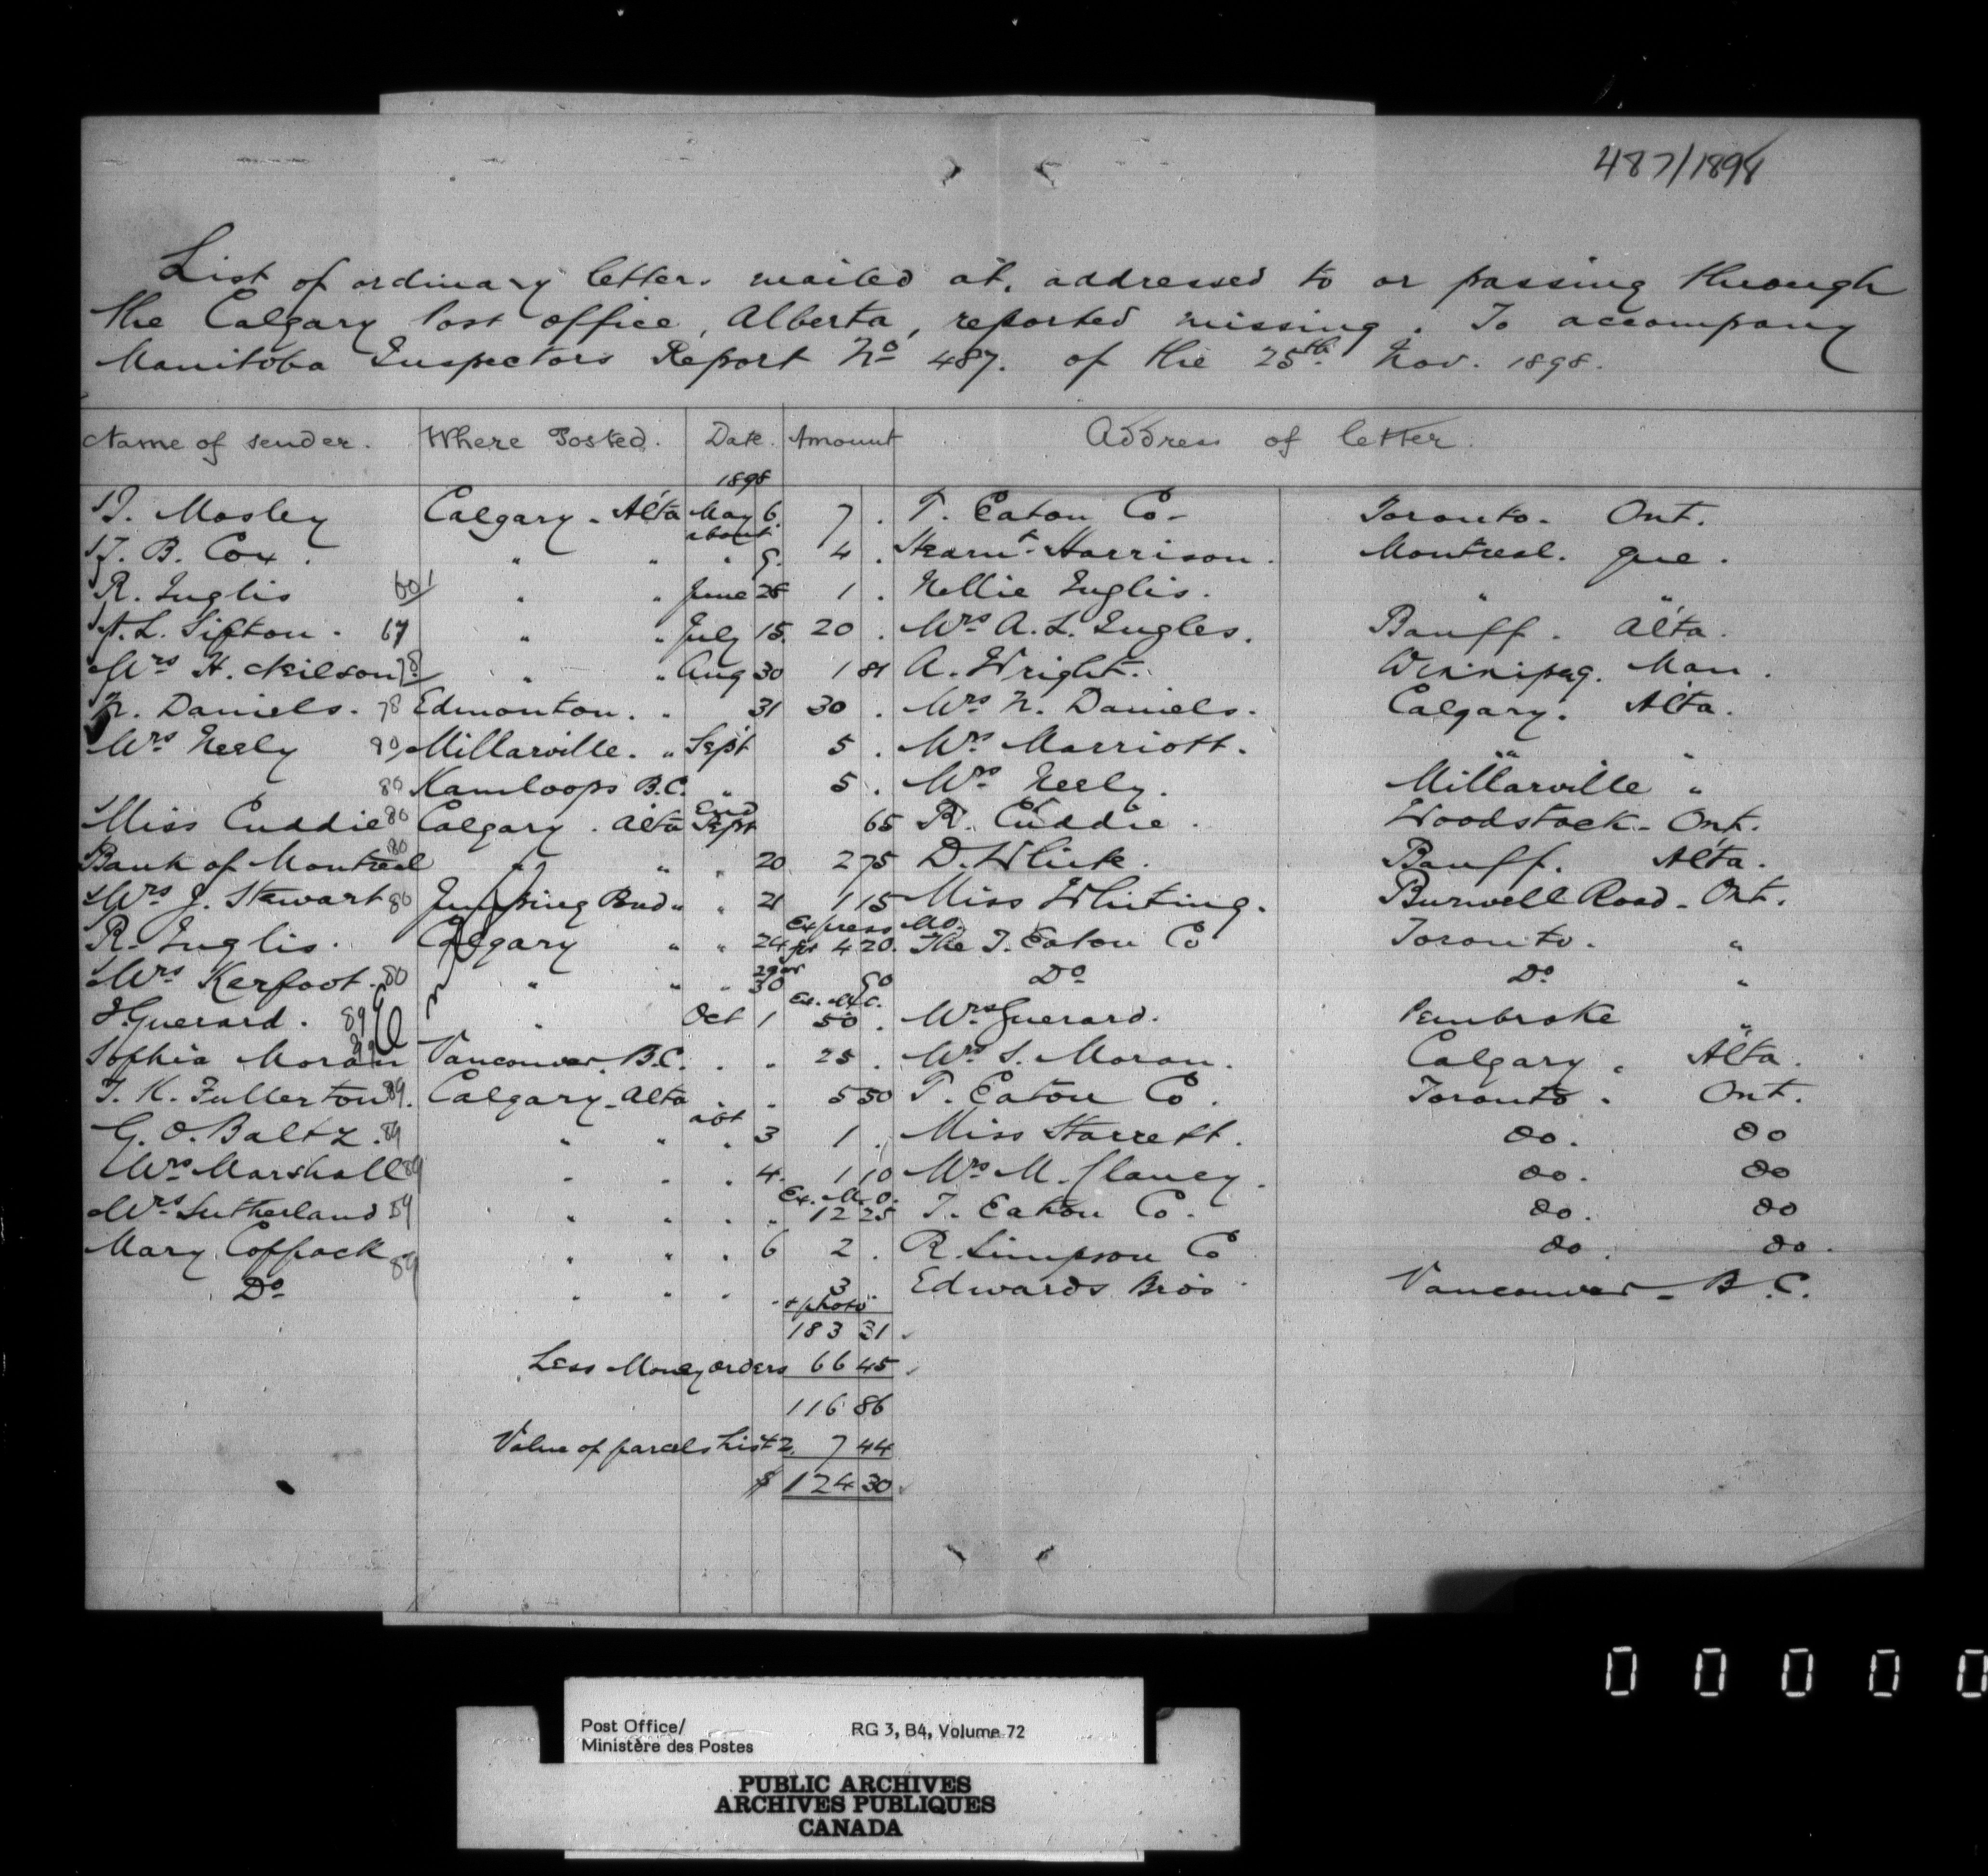 487/1898
List of ordinary letters mailed at, addressed to or passing through
the Calgary Post Office, Alberta, reported missing. To accompany
Manitoba Inspectors Report No 487. of the 25th Nov. 1898.
Name of sender. Where Posted. Date. Amount Address of letter.
1898
Mosley Calgary. Alta May 6. 7. T. Eaton Co- Toronto. Ont.
B. Cox. " " about " 9. 4. Harrison. Montreal. Que.
R. Inglis 60/ " " June 28 1. Nellie Inglis. " "
A. L. Sifton. 67 " " July 15. 20. Mrs A. L. Ingles. Banff. Alta.
Mrs H. Neilson 78 " " Aug 30 1 81 A. Wright. Winnipeg. Man.
N. Daniels. 78 Edmonton. " 31 30. Mrs N. Daniels. Calgary. Alta.
Mrs Neely 80 Millarville. " Sept 5. Mrs Marriott. " "
80 Kamloops B.C. " 5. Mrs Neely. Millarville "
Miss Cuddie 80 Calgary. Alta End Sept 65 R. Cuddie. Woodstock. Ont.
Bank of Montreal 80 " " " 20 2 75 D. White. Banff. Alta.
Mrs J. Stewart 80 Jumping Pond " " 21 1 15 Miss Whiting. Burwell Road. Ont.
R. Inglis. Calgary " " 24 Express M.O. for 4 20. The T. Eaton Co Toronto. "
Mrs Kerfoot. 80 " " " 29 or 30 50 Do Do "
Guerard. 89 " Oct 1 Ex. M.O. 50. Mrs Guerard. Pembroke "
Sophia Moran 89 Vancouver. B.C. . . 25. Mrs S. Moran. Calgary. Alta.
T. K. Fullerton 89. Calgary. Alta . . 5 50 T. Eaton Co. Toronto. Ont.
G. O. Baltz. 89 " " abt " 3 1. Miss Starrett. do. do
Mrs Marshall 89 " " " 4. 1 10 Mrs M. Clancy. do. do
Mrs Sutherland 89 " " " " Ex. M.O. 12 25 T. Eaton Co. do. do
Mary Coppock 89 " " " 6 2. R. Simpson Co do. do.
Do " " " " 3 + photo Edwards Bros Vancouver. B.C.
183 31
Less Money orders 66 45
116 86
Value of parcels List 2. 7 44
$ 124 30
0 0 0 0 0
Post Office/ RG 3, B4, Volume 72
Ministère des Postes
PUBLIC ARCHIVES
ARCHIVES PUBLIQUES
CANADA